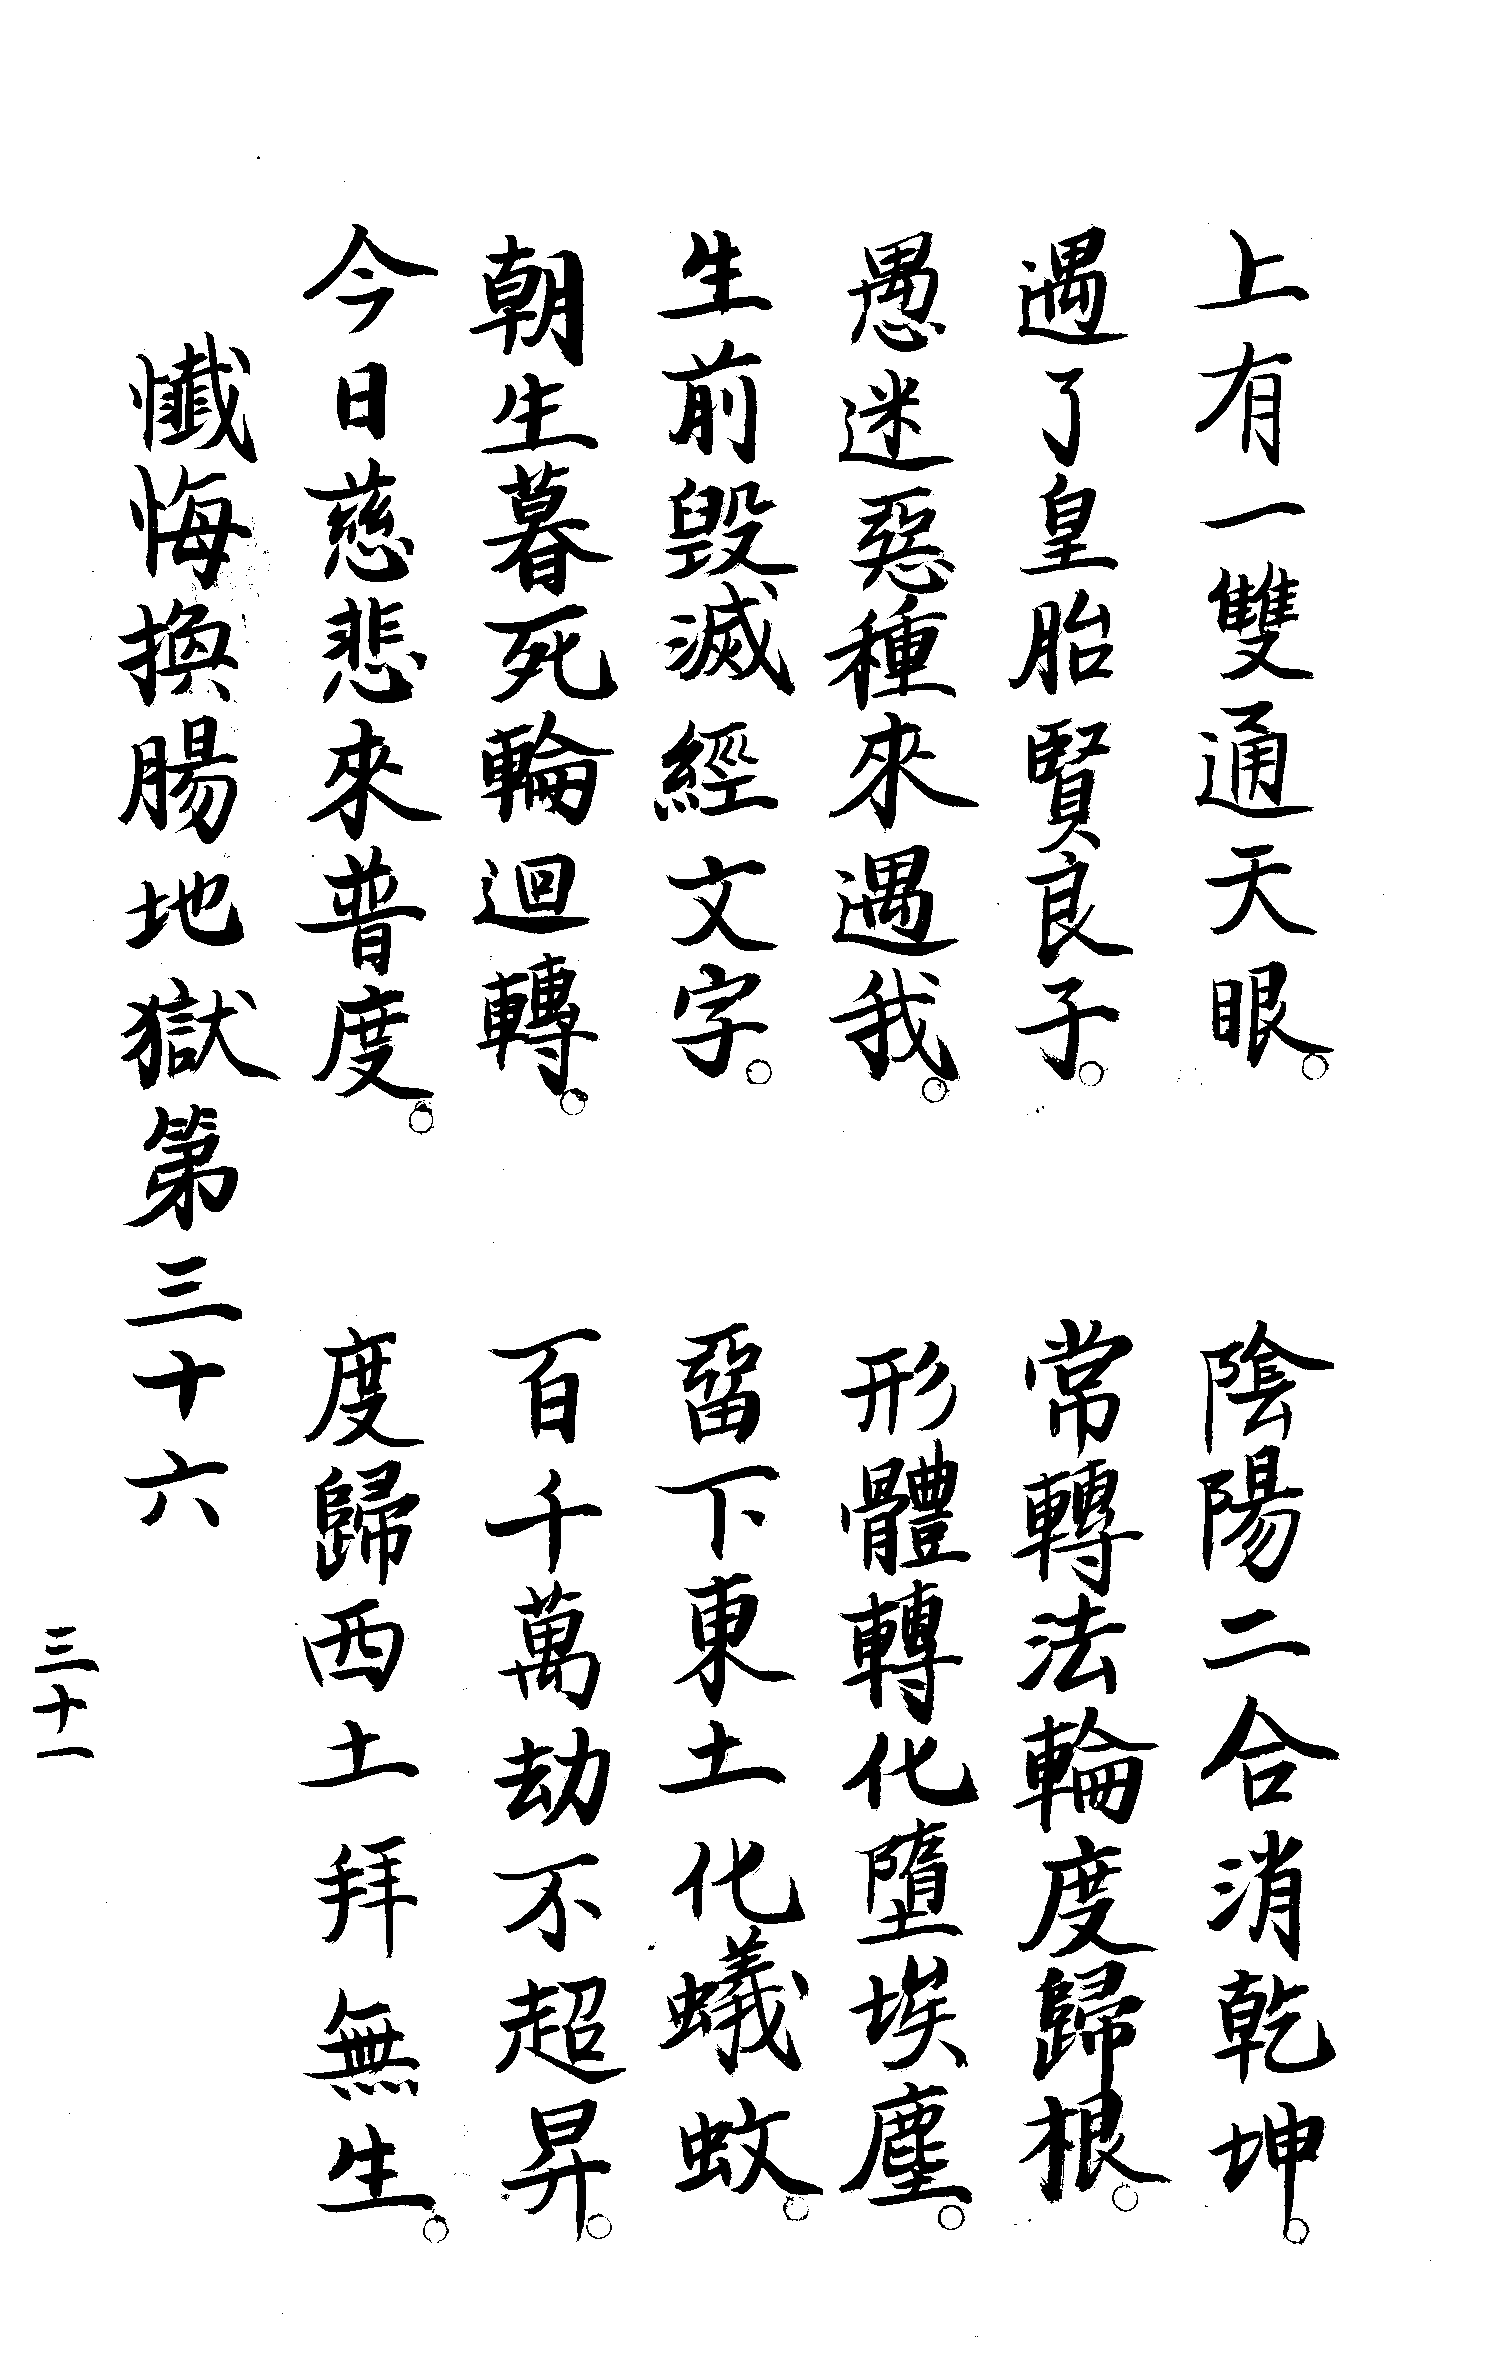 上有一雙通天眼。 陰陽二合消乾坤。
遇了皇胎賢良子。 常轉法輪度歸根。
愚迷惡種來遇我。 形體轉化墮埃塵。
生前毀滅經文字。 畱下東土化蟻蚊。
朝生暮死輪迴轉。 百千萬劫不超昇。
今日慈悲來普度。 度歸西土拜無生。
懺悔換腸地獄第三十六
三十一